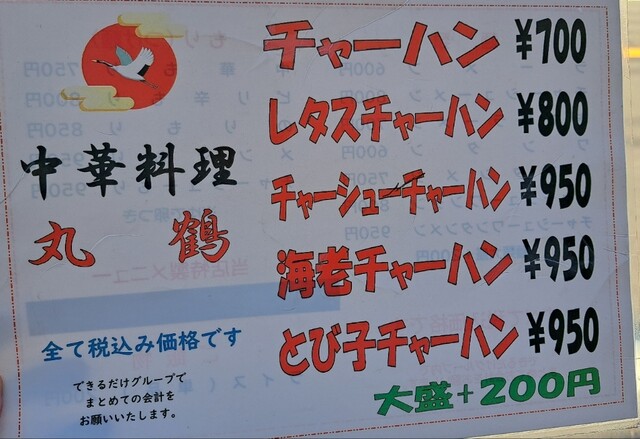 中華料理
丸鶴
全て税込み価格です
できるだけグループで
まとめての会計を
お願いいたします。
チャーハン ¥700
レタスチャーハン ¥800
チャーシューチャーハン ¥950
海老チャーハン ¥950
とび子チャーハン ¥950
大盛+200円